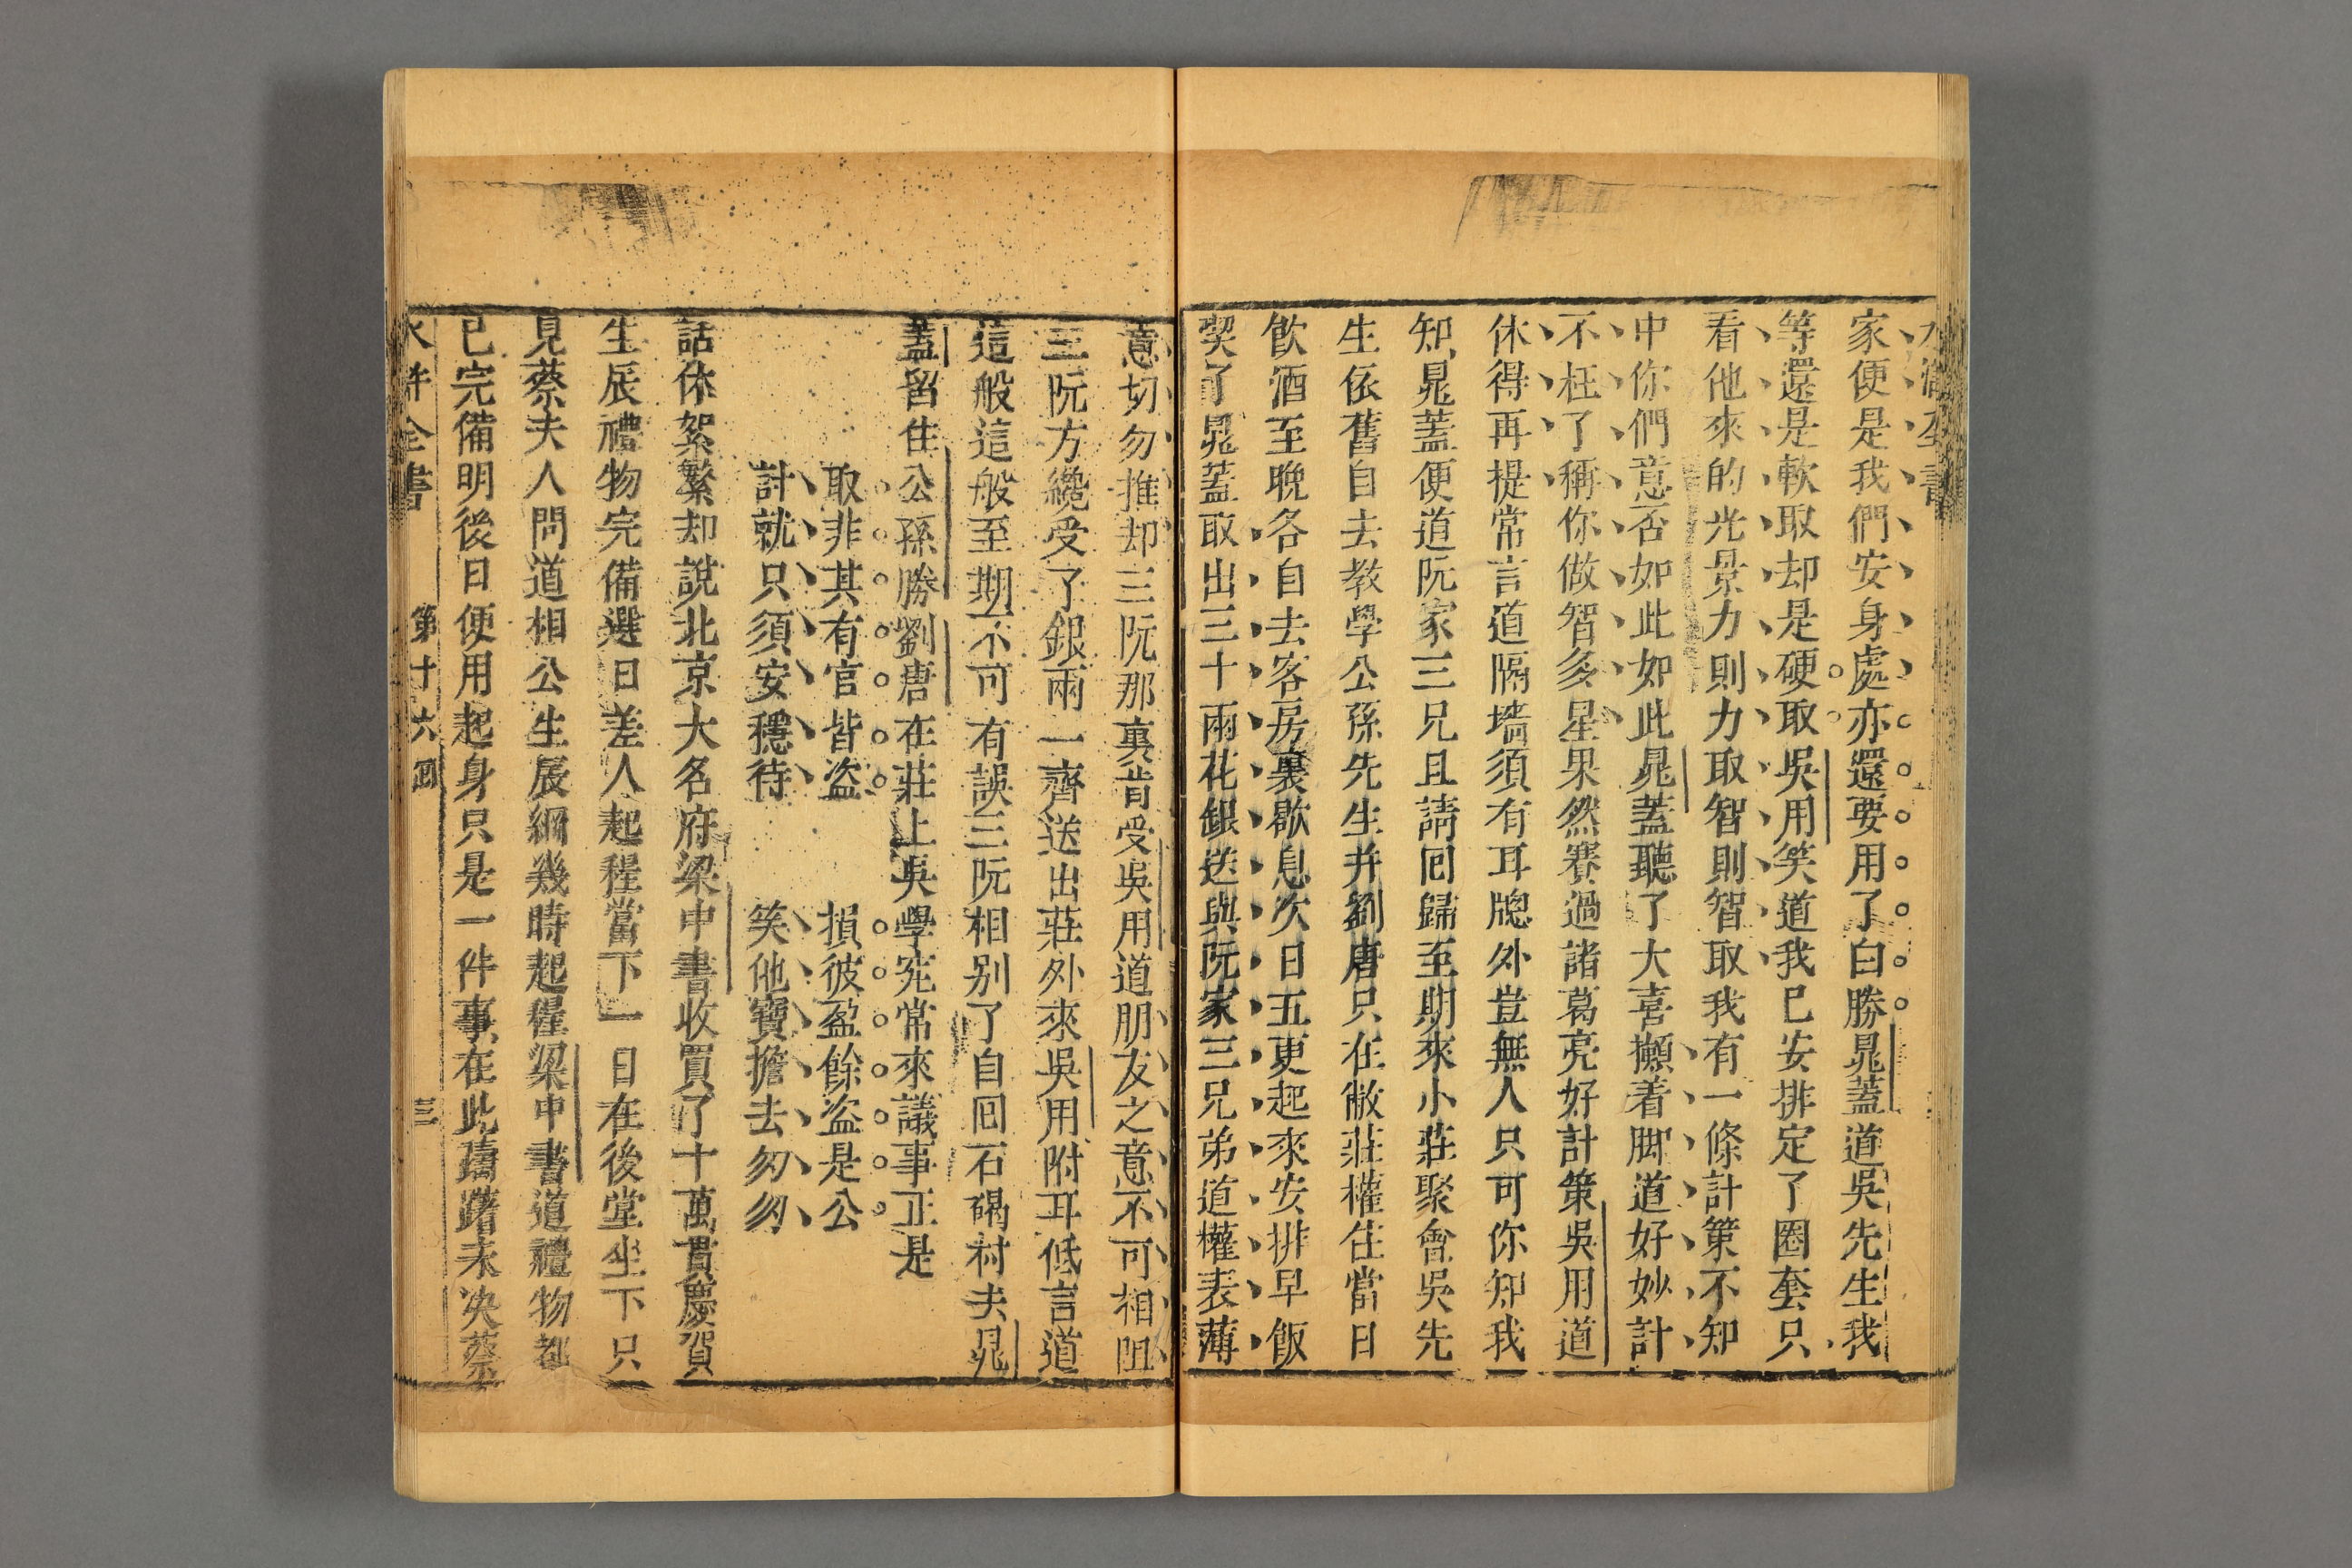 家便是我們安身處亦還要用了白勝晁蓋道吳先生我
等還是軟取却是硬取吳用笑道我已安排定了圈套只
看他來的光景力則力取智則智取我有一條計策不知
中你們意否如此如此晁蓋聽了大喜攧着脚道好妙計
不枉了稱你做智多星果然賽過諸葛亮好計策吳用道
休得再提常言道隔墻須有耳牕外豈無人只可你知我
知晁蓋便道阮家三兄且請囘歸至期來小莊聚會吳先
生依舊自去教學公孫先生并劉唐只在敝莊權住當日
飲酒至晚各自去客房裏歇息次日五更起來安排早飯
喫了晁蓋取出三十兩花銀送與阮家三兄弟道權表薄
意切勿推却三阮那裏肯受吳用道朋友之意不可相阻
三阮方纔受了銀兩一齊送出莊外來吳用附耳低言道
這般這般至期不可有誤三阮相别了自囘石碣村去晁
蓋留住公孫勝劉唐在莊上吳學究常來議事正是
取非其有官皆盜　損彼盈餘盜是公
計就只須安穩待　笑他寶擔去匆匆
話休絮繁却說北京大名府梁中書收買了十萬貫慶賀
生辰禮物完備選日差人起程當下一日在後堂坐下只
見蔡夫人問道相公生辰綱幾時起程梁中書道禮物都
已完備明後日便用起身只是一件事在此躊躇未決蔡
水滸全書　第十六囘　三